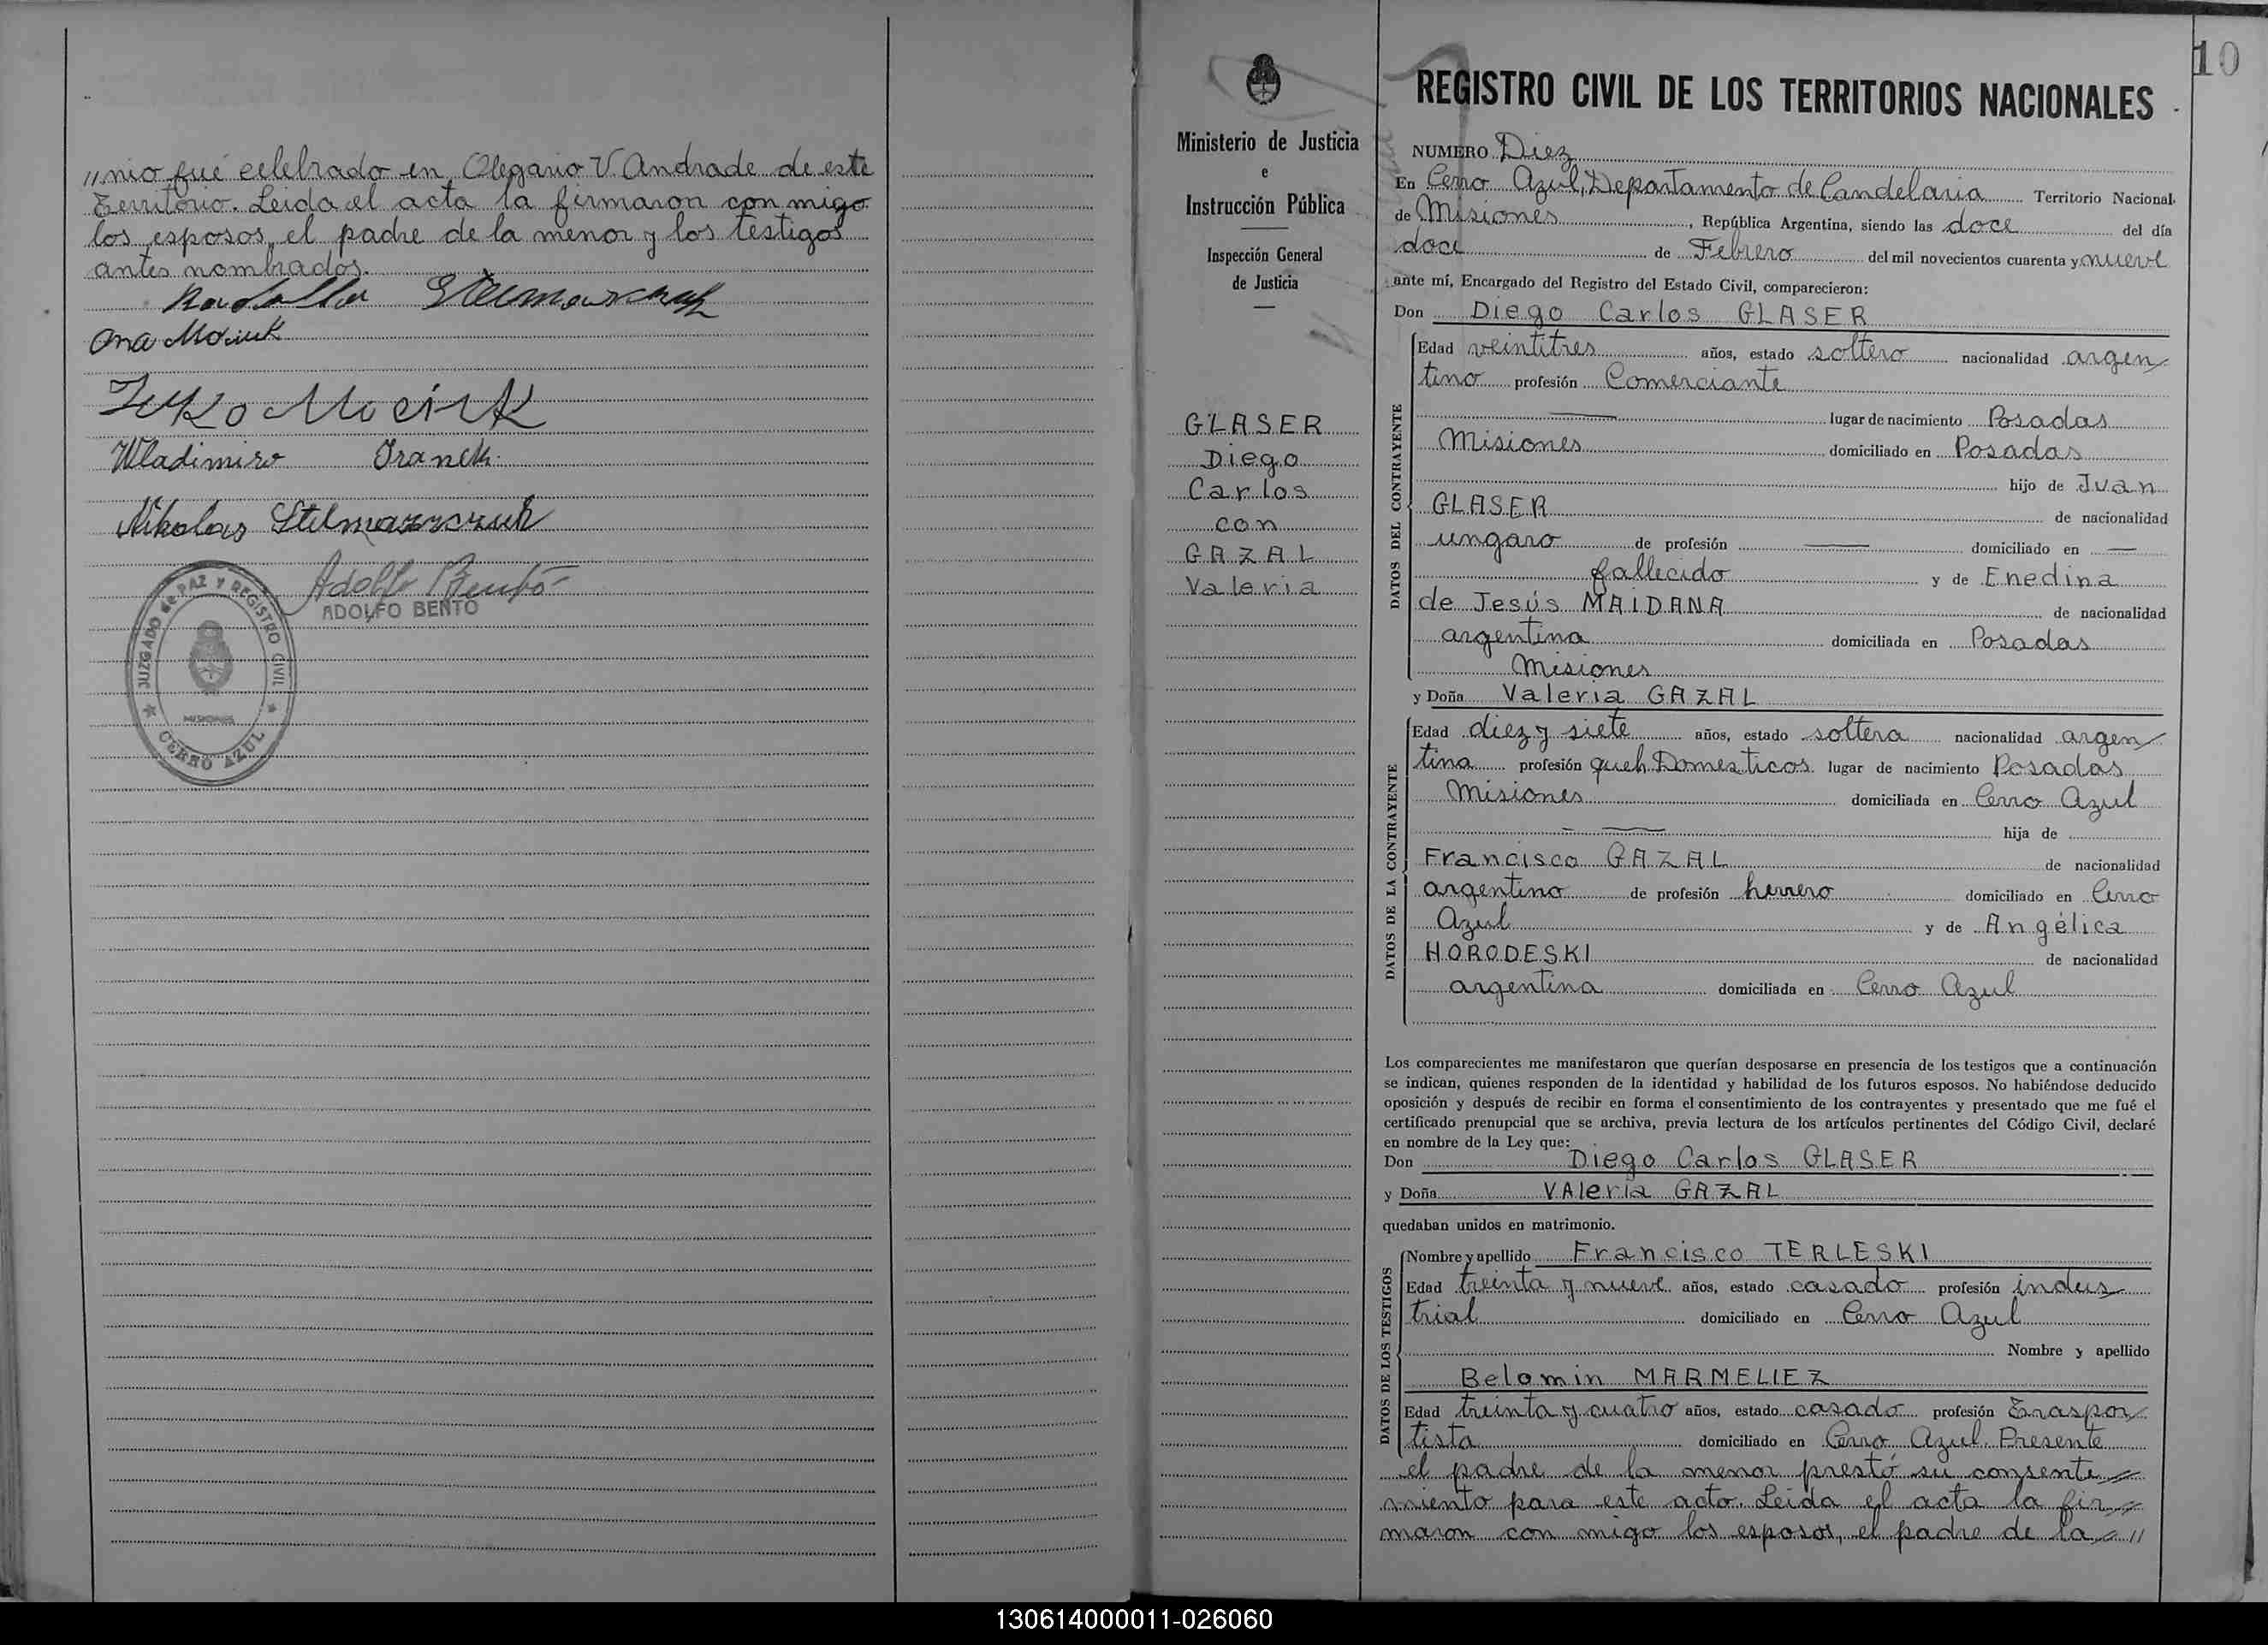 //nio fué celebrado en Olegario V. Andrade de este
Territorio. Leida el acta la firmaron con migo
los esposos, el padre de la menor y los testigos
antes nombrados.
Ana Mociuk
Wladimiro
Nikolas Stelmaszczuk
Adolfo Bentó
ADOLFO BENTO
JUZGADO de PAZ Y REGISTRO CIVIL
MISIONES
CERRO AZUL
Ministerio de Justicia
e
Instrucción Pública
Inspección General
de Justicia
GLASER
Diego
Carlos
con
GAZAL
Valeria
10
REGISTRO CIVIL DE LOS TERRITORIOS NACIONALES
NUMERO Diez
En Cerro Azul, Departamento de Candelaria Territorio Nacional
de Misiones, República Argentina, siendo las doce del día
doce de Febrero del mil novecientos cuarenta y nueve
ante mí, Encargado del Registro del Estado Civil, comparecieron:
Don Diego Carlos GLASER
DATOS DEL CONTRAYENTE
Edad veintitres años, estado soltero nacionalidad argen
tino profesión Comerciante
lugar de nacimiento Posadas
Misiones domiciliado en Posadas
hijo de Juan
GLASER de nacionalidad
ungaro de profesión — domiciliado en —
fallecido y de Enedina
de Jesús MAIDANA de nacionalidad
argentina domiciliada en Posadas
Misiones
y Doña Valeria GAZAL
DATOS DE LA CONTRAYENTE
Edad diez y siete años, estado soltera nacionalidad argen
tina profesión queh. Domesticos lugar de nacimiento Posadas
Misiones domiciliada en Cerro Azul
hija de
Francisco GAZAL de nacionalidad
argentino de profesión herrero domiciliado en Cerro
Azul y de Angélica
HORODESKI de nacionalidad
argentina domiciliada en Cerro Azul
Los comparecientes me manifestaron que querían desposarse en presencia de los testigos que a continuación
se indican, quienes responden de la identidad y habilidad de los futuros esposos. No habiéndose deducido
oposición y después de recibir en forma el consentimiento de los contrayentes y presentado que me fué el
certificado prenupcial que se archiva, previa lectura de los artículos pertinentes del Código Civil, declaré
en nombre de la Ley que:
Don Diego Carlos GLASER
y Doña VAleria GAZAL
quedaban unidos en matrimonio.
DATOS DE LOS TESTIGOS
Nombre y apellido Francisco TERLESKI
Edad treinta y nueve años, estado casado profesión indus
trial domiciliado en Cerro Azul
Nombre y apellido
Belomin MARMELIEZ
Edad treinta y cuatro años, estado casado profesión Traspor
tista domiciliado en Cerro Azul. Presente
el padre de la menor prestó su consenti//
miento para este acto. Leida el acta la fir//
maron con migo los esposos, el padre de la //
130614000011-026060